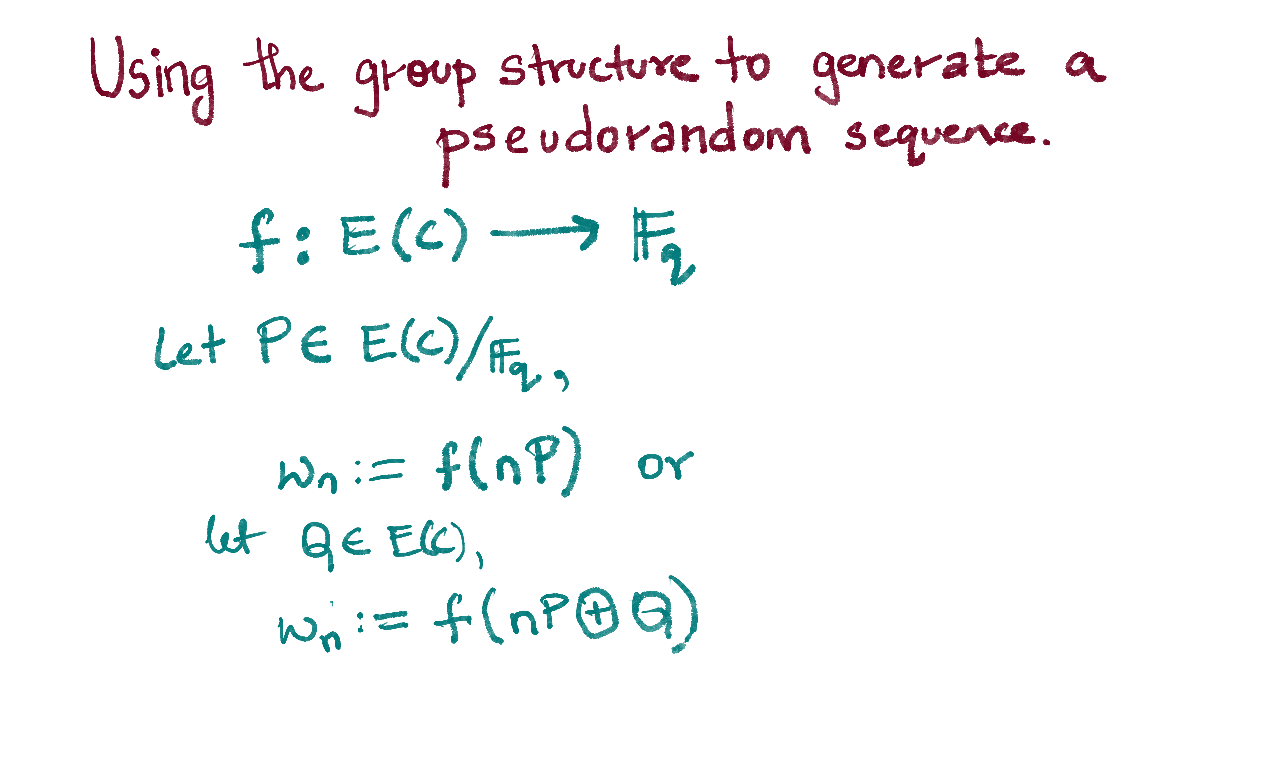 Using the group structure to generate a
pseudorandom sequence.
f : E(C) ⟶ 𝔽_q
Let P ∈ E(C)/𝔽_q,
w_n := f(nP) or
let Q ∈ E(C),
w_n := f(nP ⊕ Q)